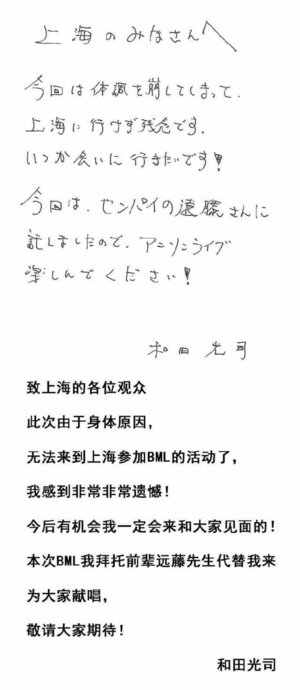 上海のみなさんへ
今回は体調を崩してしまって、
上海に行けず残念です。
いつか会いに行きたいです!
今回は、センパイの遠藤さんに
託しましたので、アニソンライブ
楽しんでください!
和田光司
致上海的各位观众
此次由于身体原因，
无法来到上海参加BML的活动了，
我感到非常非常遗憾！
今后有机会我一定会来和大家见面的！
本次BML我拜托前辈远藤先生代替我来
为大家献唱，
敬请大家期待！
和田光司